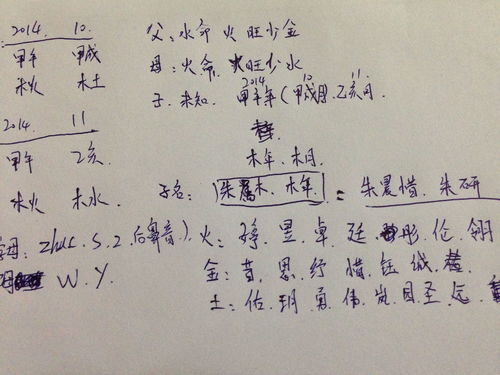 2014. 10.
甲午 甲戌
木火 木土
2014. 11
甲午 乙亥
木火 木水
父:水命 火旺少金
母:火命 火旺少水
子:未知. 2014 甲午年(10 甲戌月. 11 乙亥月.
木年.木月
子名:朱属木.木年. = 朱晨惜.朱研
字母: zhuc.s.z.后鼻音)
W.Y.
火: 昱.卓.廷.彤.伦.翎
金: 思.纾.惜.钰.诚.
土:佑.玥.勇.伟.岚.圣.远.